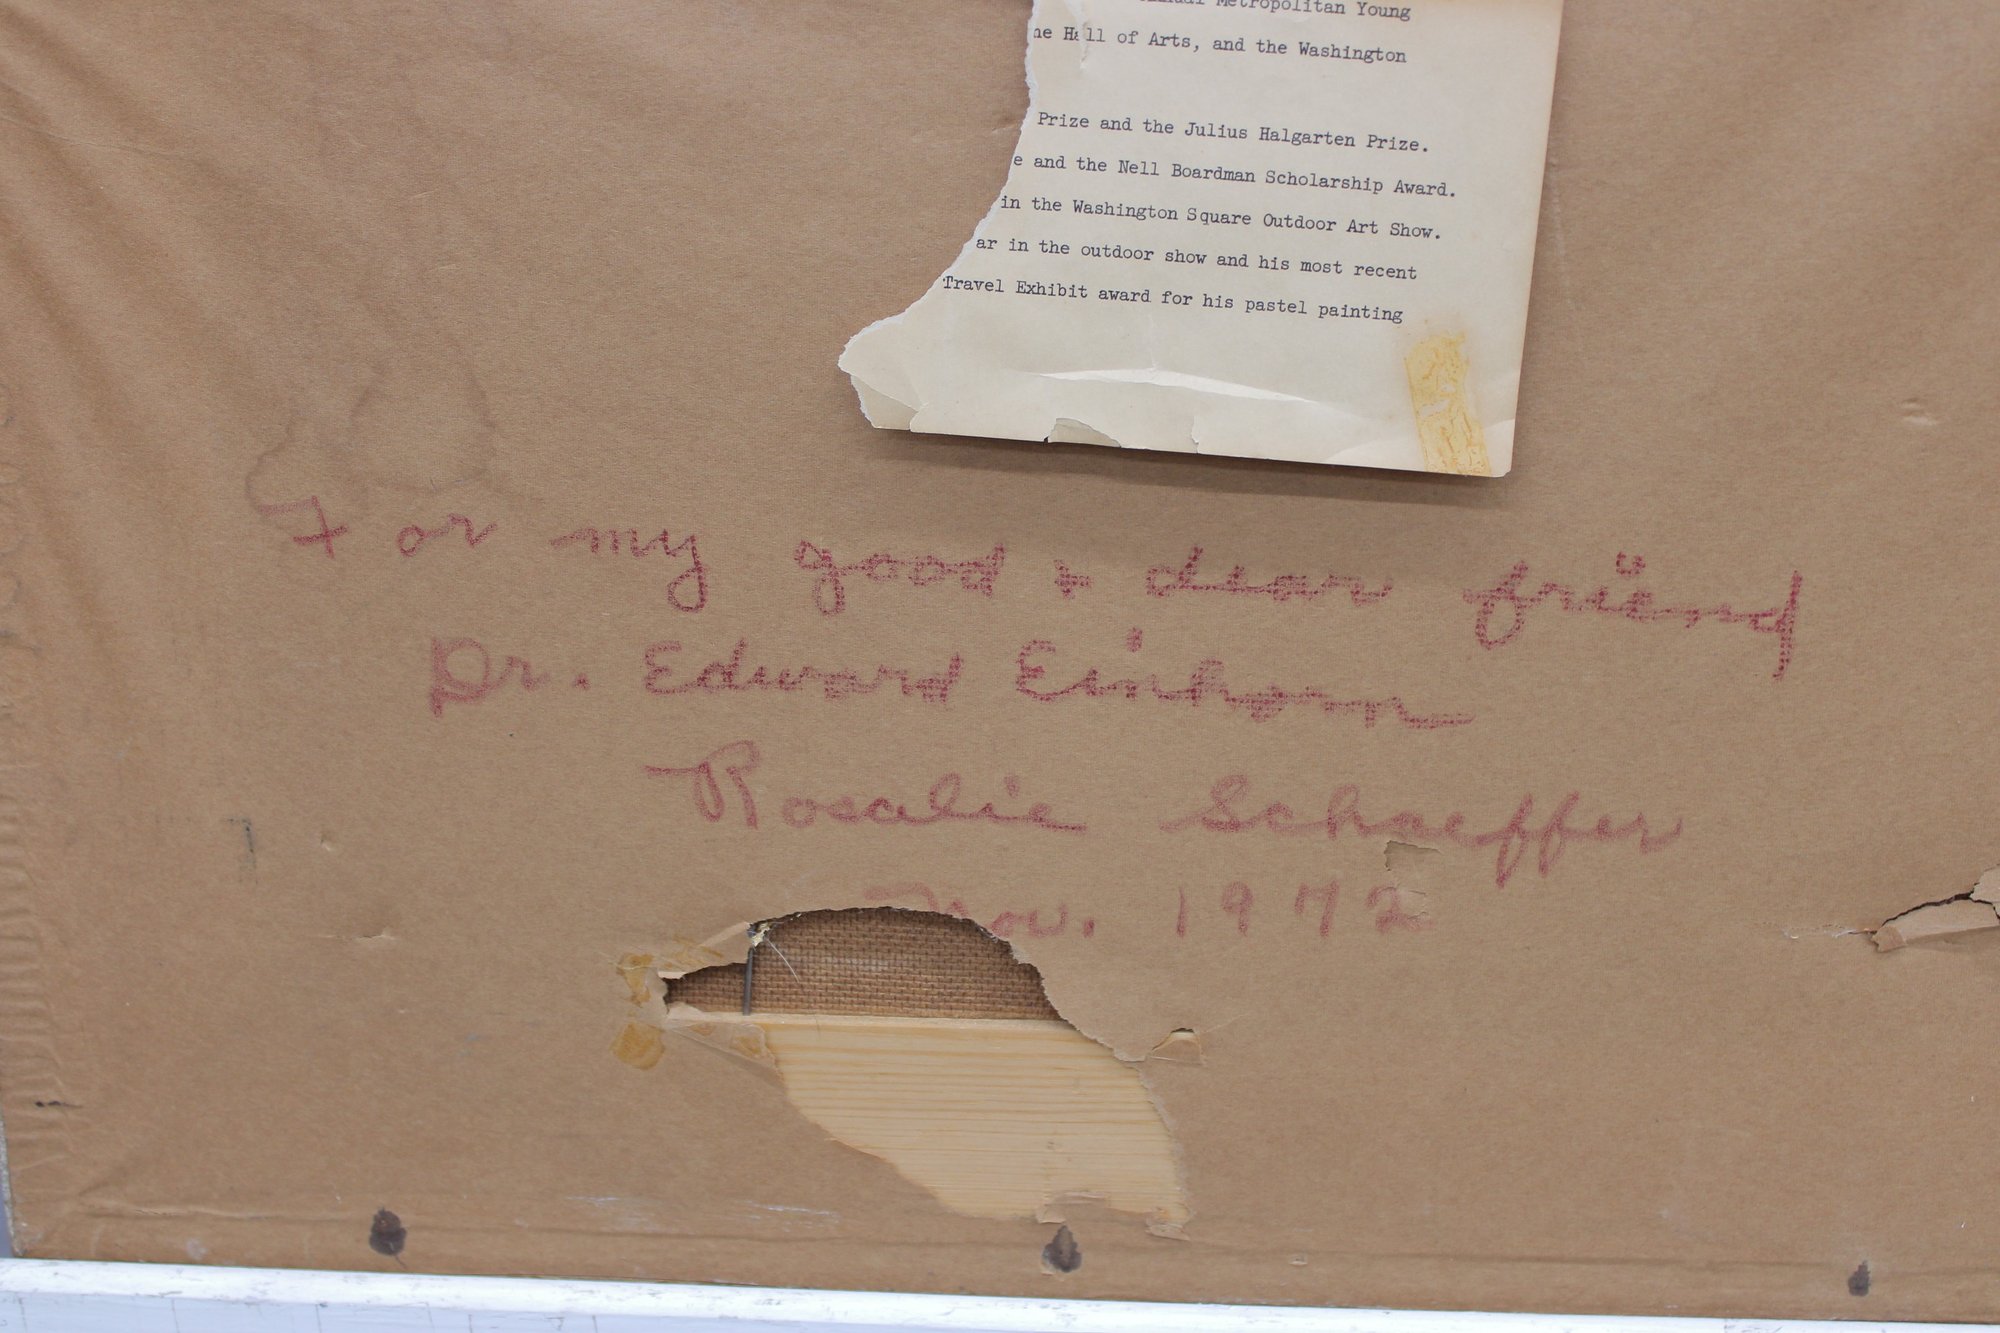 Metropolitan Young
Hall of Arts, and the Washington
Prize and the Julius Halgarten Prize.
e and the Nell Boardman Scholarship Award.
in the Washington Square Outdoor Art Show.
ar in the outdoor show and his most recent
Travel Exhibit award for his pastel painting
For my good + dear friend
Dr. Edward Einhorn
Rosalie Schaeffer
Nov. 1972